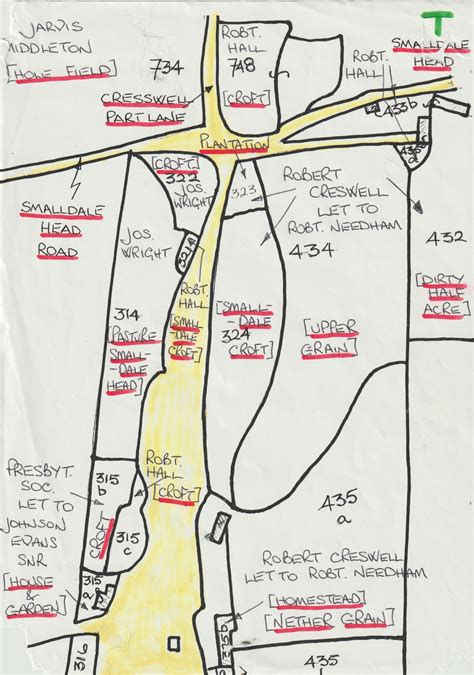 JARVIS
MIDDLETON
[HOLE FIELD]
734
ROBT.
HALL
748
[CROFT]
T
ROBT.
HALL
SMALLDALE
HEAD
CRESSWELL
PART LANE
433b
PLANTATION
435
a
[CROFT]
322
JOS.
WRIGHT
323
ROBERT
CRESWELL
LET TO
ROBT. NEEDHAM
434
432
SMALLDALE
HEAD
ROAD
JOS.
WRIGHT
321a
ROBT.
HALL
[SMALL
-DALE
CROFT]
314
[PASTURE
SMALL-
-DALE
HEAD]
[SMALL-
-DALE
324
CROFT]
[UPPER
GRAIN]
[DIRTY
HALF
ACRE]
ROBT.
HALL
[CROFT]
PRESBYT.
SOC.
LET TO
JOHNSON
EVANS
SNR
[HOUSE
&
GARDEN]
315
b
CROFT
315
c
315
a
435
a
ROBERT CRESWELL
LET TO ROBT. NEEDHAM
[HOMESTEAD]
[NETHER GRAIN]
316
315b
435